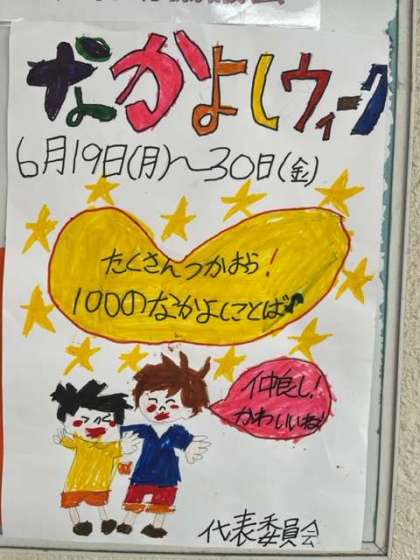 なかよしウィーク
6月19日(月)～30日(金)
たくさんつかおう!
100のなかよしことば♪
仲良し!
かわいいね!
代表委員会